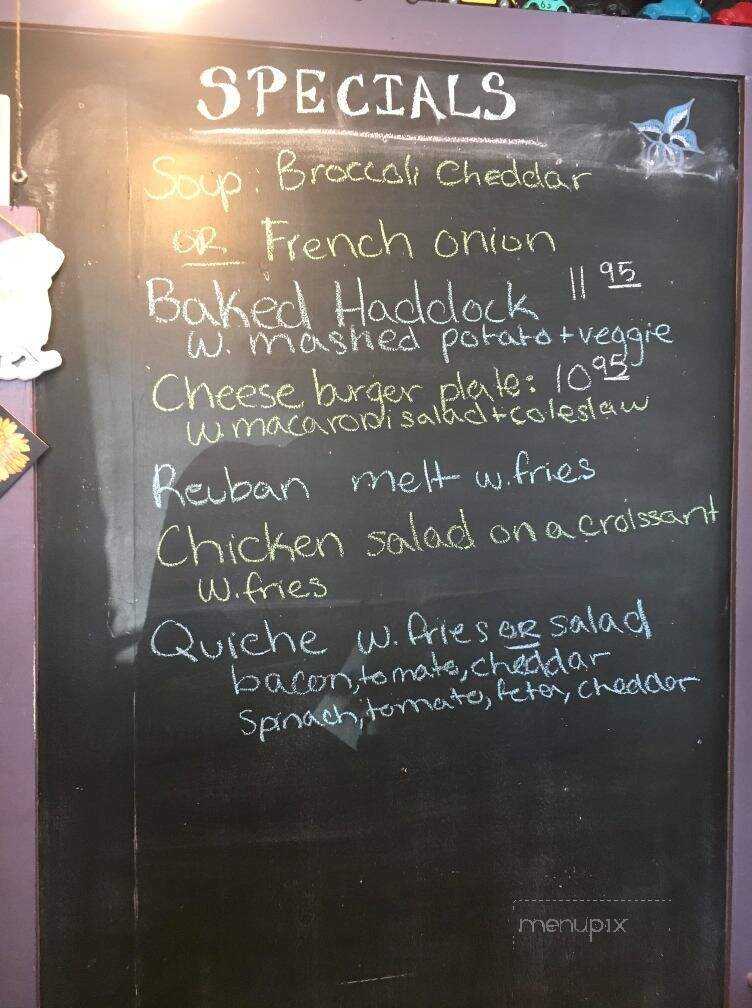 SPECIALS
Soup: Broccoli Cheddar
OR French onion
Baked Haddock 11 95
w. mashed potato + veggie
Cheese burger plate: 10 95
w. macaroni salad + coleslaw
Reuban melt w. fries
Chicken salad on a croissant
w. fries
Quiche w. fries OR salad
bacon, tomato, cheddar
Spinach, tomato, feta, cheddar
menupix